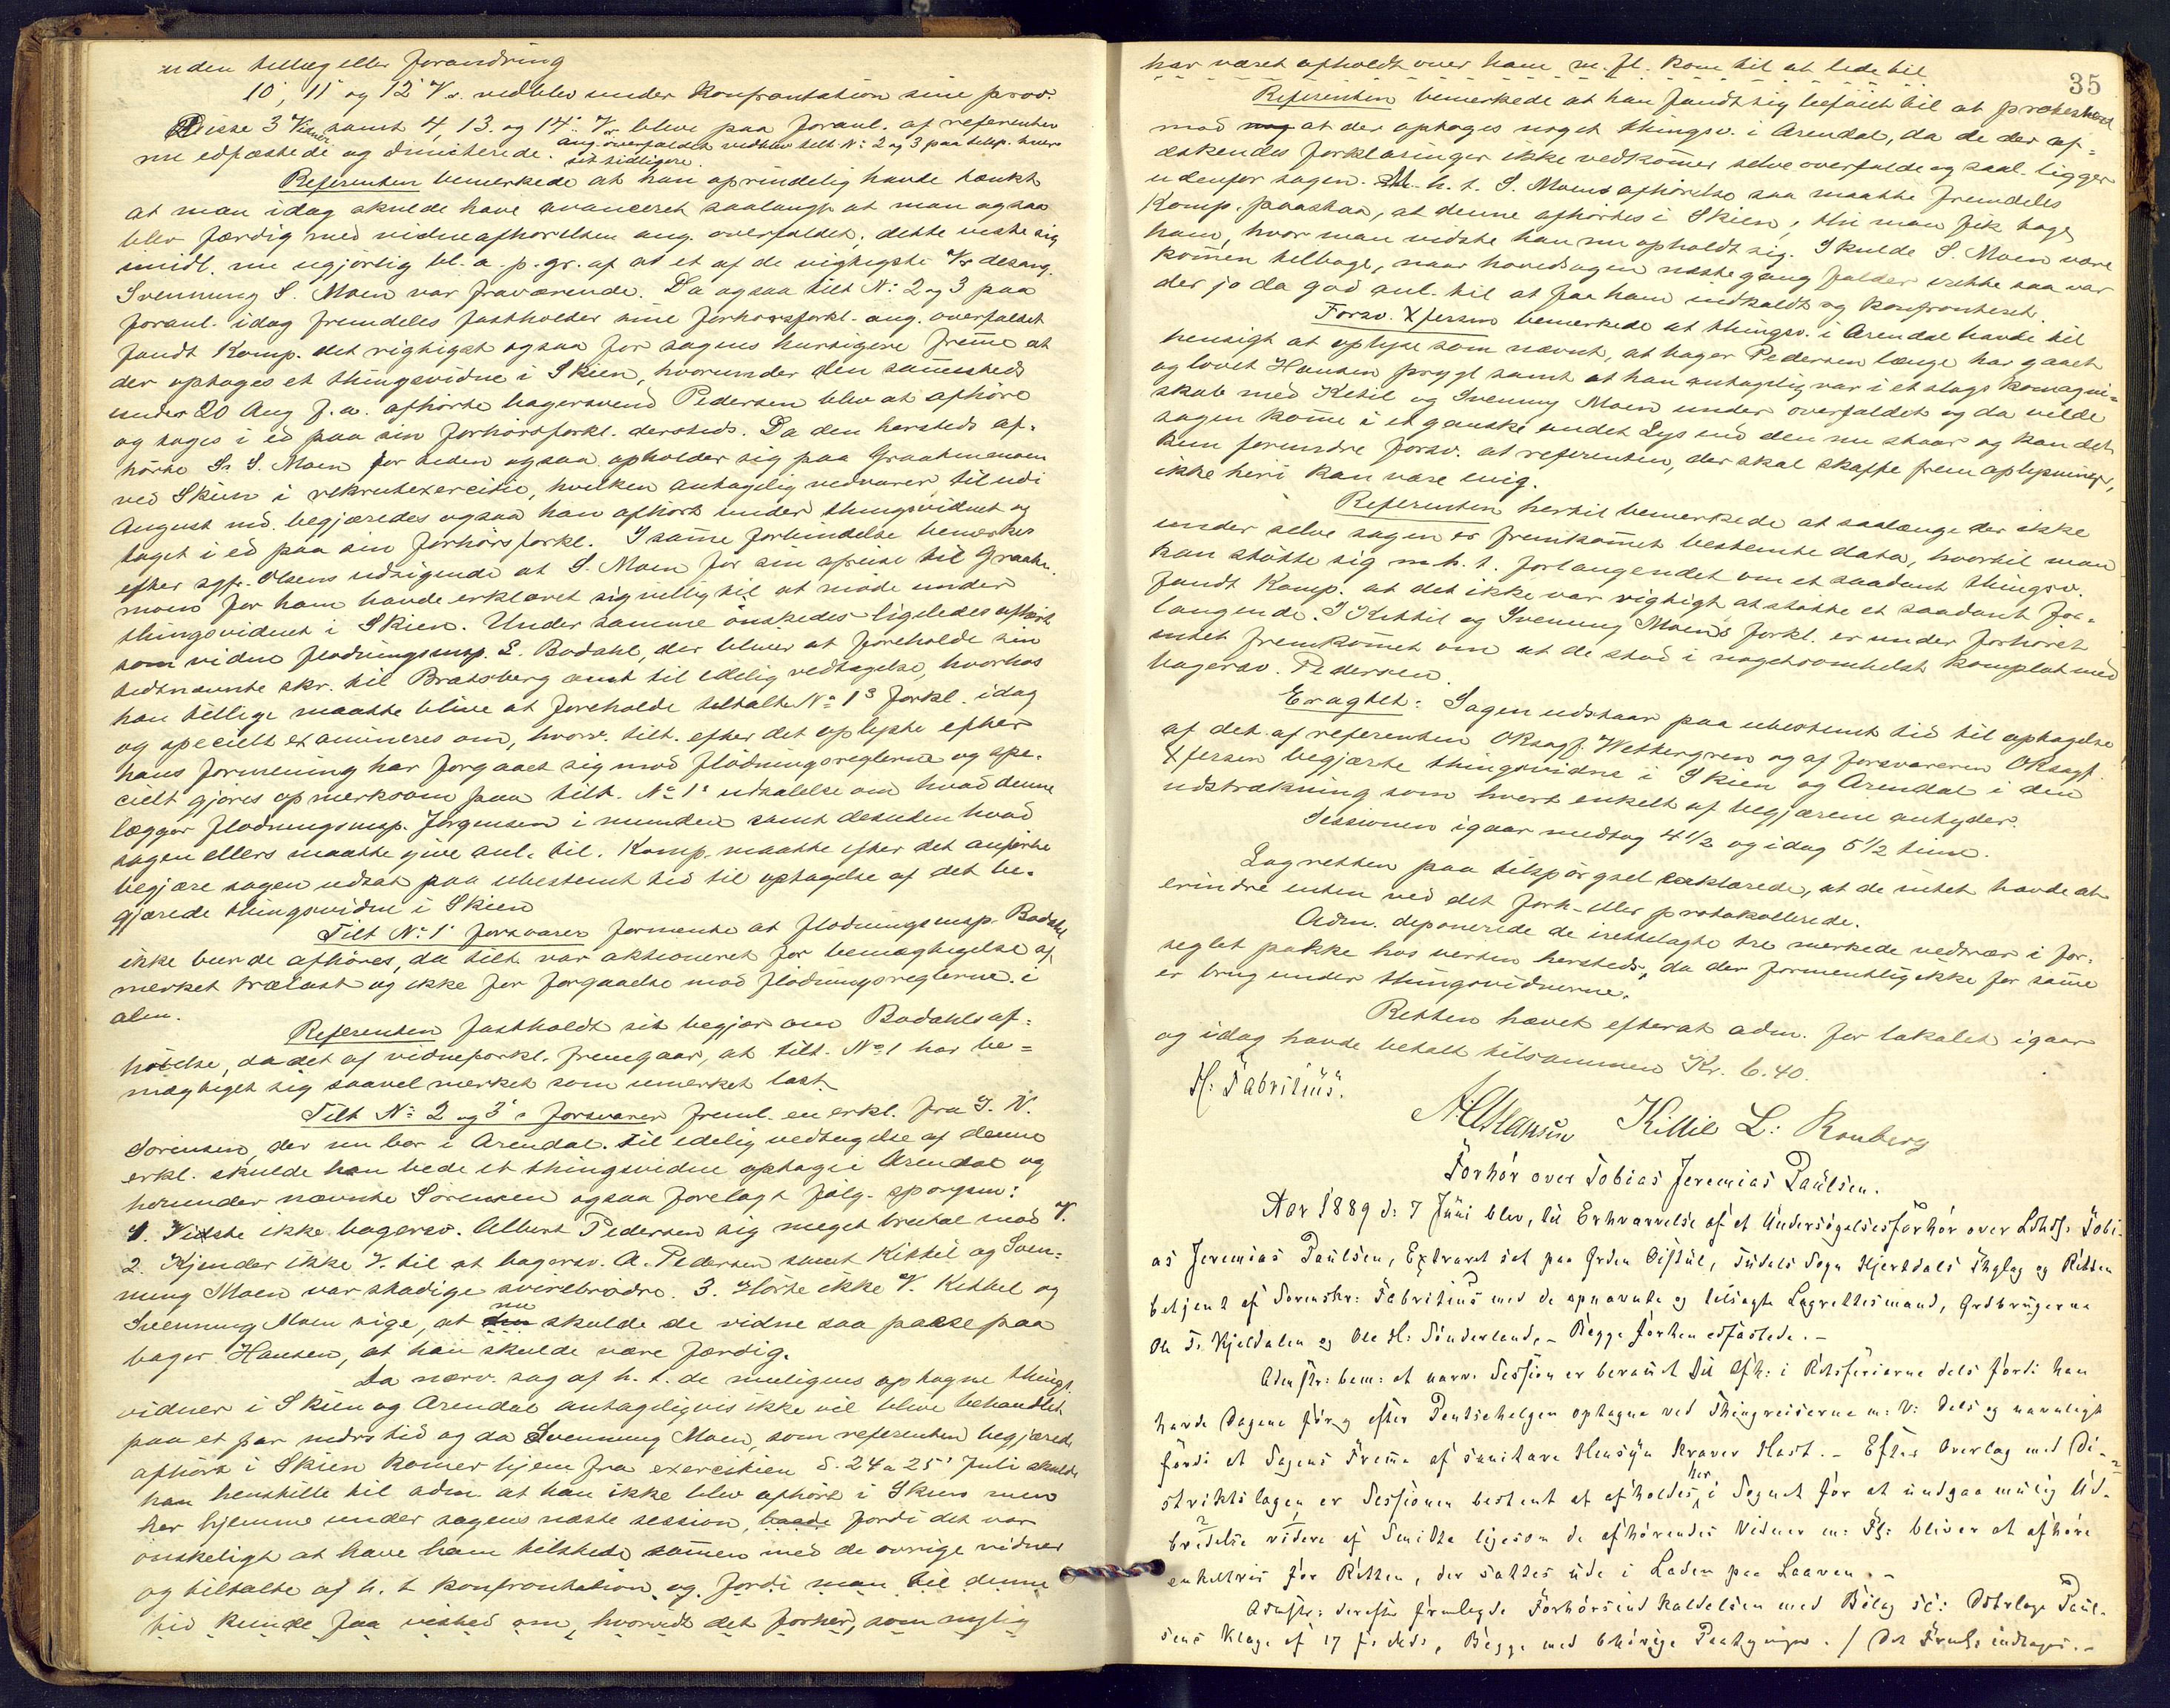 uden tillæg eller forandring
10', 11' og 12' V. vedblev under Konfrontation sine prov.
Disse 3 Vidner samt 4, 13. og 14' Vr bleve paa foranl. af referenten
nu edfæstede og dimitterede. ang. overfaldet vedblev tilt. N: 2 og 3 paa tilsp. hver
sit tidligere.
Referenten bemerkede at han oprindelig havde tænkt
at man idag skulde have avanceret saalangt at man ogsaa
blev færdig med vidneafhørelsen ang. overfaldet; dette viste sig
imidl. nu ugjørlig bl. a. p. gr. af at et af de vigtigste Vr desang.
Svennung S. Moen var fraværende. Da ogsaa tilt N: 2 og 3 paa
foranl. idag fremdeles fastholder sine forhørsforkl. ang. overfaldet
fandt Komp. det rigtigst ogsaa for sagens hurtigere fremme at
der optages et thingsvidne i Skien, hvorunder den sammesteds
under 20 Aug f. a. afhørte bagersvend Pedersen blev at afhøre
og tages i ed paa sin forhørsforkl. dersteds. Da den hersteds af-
hørte Sv. S. Moen for tiden ogsaa opholder sig paa Graatenmoen
ved Skien i rekrutexercitie, hvilken antagelig vedvarer til udi
August md. begjæredes ogsaa han afhørt under thingsvidnet og
taget i ed paa sin forhørsforkl. I samme forbindelse bemerkes
efter sgf. Olsens udsigende at S. Moen før sin afreise til Graaten-
moen for ham havde erklæret sig villig til at møde under
thingsvidnet i Skien. Under samme ønskedes ligeledes afhørt
som vidne flødningsinsp. E. Bodahl, der bliver at foreholde sin
sidstnævnte skr. til Bratsberg amt til edelig vedtagelse, hvorhos
han tillige maatte blive at foreholde tiltalte No 1s forkl. idag
og specielt examineres om, hvorv. tilt. efter det oplyste efter
hans formening har forgaaet sig mod flødningsreglerne og spe-
cielt gjøres opmerksom paa tilt. No 1s udtalelse om hvad denne
lægger flødningsinsp. Jørgensen i munden samt desuden hvad
sagen ellers maatte give anl. til. Komp. maatte efter det anførte
begjære sagen udsat paa ubestemt tid til optagelse af det be-
gjærede thingsvidne i Skien
Tilt No 1' forsvarer formente at flødningsinsp. Bodahl
ikke burde afhøres, da tilt. var aktioneret for bemægtigelse af
merket trælast og ikke for forgaaelse mod flødningsreglerne i
alm.
Referenten fastholdt sit begjær om Bodahls af-
hørelse, da det af vidneforkl. fremgaar, at tilt. No 1 har be-
mægtiget sig saavel merket som umerket last.
Tilt N: 2 og 3's forsvarer freml. en erkl. fra J. N.
Sørensen, der nu bor i Arendal. Til edelig vedtagelse af denne
erkl. skulde han bede et thingsvidne optaget i Arendal og
herunder nævnte Sørensen ogsaa forelagt følg. spørgsm:
1. Vidste ikke bagersv. Albert Pedersen sig meget brutal mod V.
2. Kjender ikke V. til at bagersv. A. Pedersen samt Kittil og Sven-
nung Moen var stadige svirebrødre. 3. Hørte ikke V. Kittel og
Svennung Moen sige, at nu skulde de vidne saa passe paa
bager Hansen, at han skulde være færdig.
Da nærv. sag af h. t. de muligens optagne things-
vidner i Skien og Arendal antageligvis ikke vil blive behandlet
paa et par mdrs tid og da Svennung Moen, som referenten begjærede
afhørt i Skien kommer hjem fra exercitien d. 24 a 25' Juli skulde
han henstille til adm. at han ikke blev afhørt i Skien men
her hjemme under sagens næste session, baade fordi det var
ønskeligt at have ham tilstede sammen med de øvrige vidner
og tiltalte af h. t. konfrontation og fordi man til denne
tid kunde faa vished om, hvorvidt det forhør, som nylig
35
har været afholdt over ham m. fl. kom til at lede til
Referenten bemerkede at han fandt sig beføiet til at protestere
mod nog at der optages noget thingsv. i Arendal, da de der af-
æskendes forklaringer ikke vedkommer selve overfaldet og saal. ligger
udenfor sagen. M. h. t. S. Moens afhørelse saa maatte fremdeles
Komp. paastaa, at denne afhørtes i Skien, thi man fik tage
ham, hvor man vidste han nu opholdt sig. Skulde S. Moen være
kommen tilbage, naar hovedsagen næste gang falder i rette saa var
der jo da god anl. til at faa ham indkaldt og konfronteret.
Forsv. Xfersen bemerkede at thingsv. i Arendal havde til
hensigt at oplyse som nævnt, at bager Pedersen længe har gaaet
og lovet Hansen prygl samt at han antagelig var i et slags kompagni-
skab med Ketil og Svenning Moen under overfaldet og da vilde
sagen komme i et ganske andet Lys end den nu staar og kan det
kun forundre forsv. at referenten, der skal skaffe frem oplysninger,
ikke heri kan være enig.
Referenten hertil bemerkede at saalænge der ikke
under selve sagen er fremkommet bestemte data, hvortil man
kan støtte sig m. h. t. forlangendet om et saadant thingsv.
fandt Komp. at det ikke var rigtigt at støtte et saadant for-
langende. I Kittil og Svennung Moens forkl. er under forhøret
intet fremkommet om at de stod i nogetsomhelst komplot med
bagersv. Pedersen.
Eragtet: Sagen udstaar paa ubestemt tid til optagelse
af det af referenten OKsagf. Wettergren og af forsvareren OKsagf.
Xfersen begjærte thingsvidne i Skien og Arendal i den
udstrækning som hvert enkelt af begjærene antyder.
Sessionen igaar medtog 4 1/2 og idag 5 1/2 time.
Lagretten paa tilspørgsel erklærede, at de intet havde at
erindre enten ved det forh. eller protokollerede.
Adm. deponerede de irettelagte tre merkede vedtrær i for-
seglet pakke hos verten hersteds, da der formentlig ikke for samme
er brug under thingsvidnerne.
Retten hævet efterat adm. for lokalet igaar
og idag havde betalt tilsammen Kr. 6.40.
H. Fabritius.
A. Hansen Kittil L: Rouberg
Forhør over Tobias Jeremias Paulsen.
Aar 1889 d: 7 Juni blev, til Erhvervelse af et Undersøgelsesforhør over Ldhdf: Tobi-
as Jeremias Paulsen, Extraret sat paa Grden Oistul, Tudals Sogn Hjertdals Thglag og Retten
betjent af Sorenskr: Fabritius med de opnævnte og tilsagte Lagrettesmænd, Grdbrugerne
Ole T. Kjeldalen og Ole H: Sønderland, – Begge førhen edfæstede. –
Admstr: bem: at nærv: Session er beramet til Afh: i Retsferierne dels fordi han
havde Dagene før og efter Pentsehelgen optagne ved Thingreiserne m: V: dels og navnligt
fordi at Sagens Fremme af sanitære Hensyn kræver Hast. – Efter Overlæg med Di-
striktslægen er Sessionen bestemt at afholdes her i Sognet for at undgaa mulig Ud-
bredelse videre af Smitte ligesom de afhørendes Vidner m: Fl: bliver at afhøre
enkeltvis for Retten, der sættes ude i Laden paa Laaven. –
Admstr: derefter fremlagde Forhørsindkaldelsen med Bilag sc: Paul-
sens Klage af 17 f: Mds, Begge med behørige Paategninger. / Det Freml: indtages. –